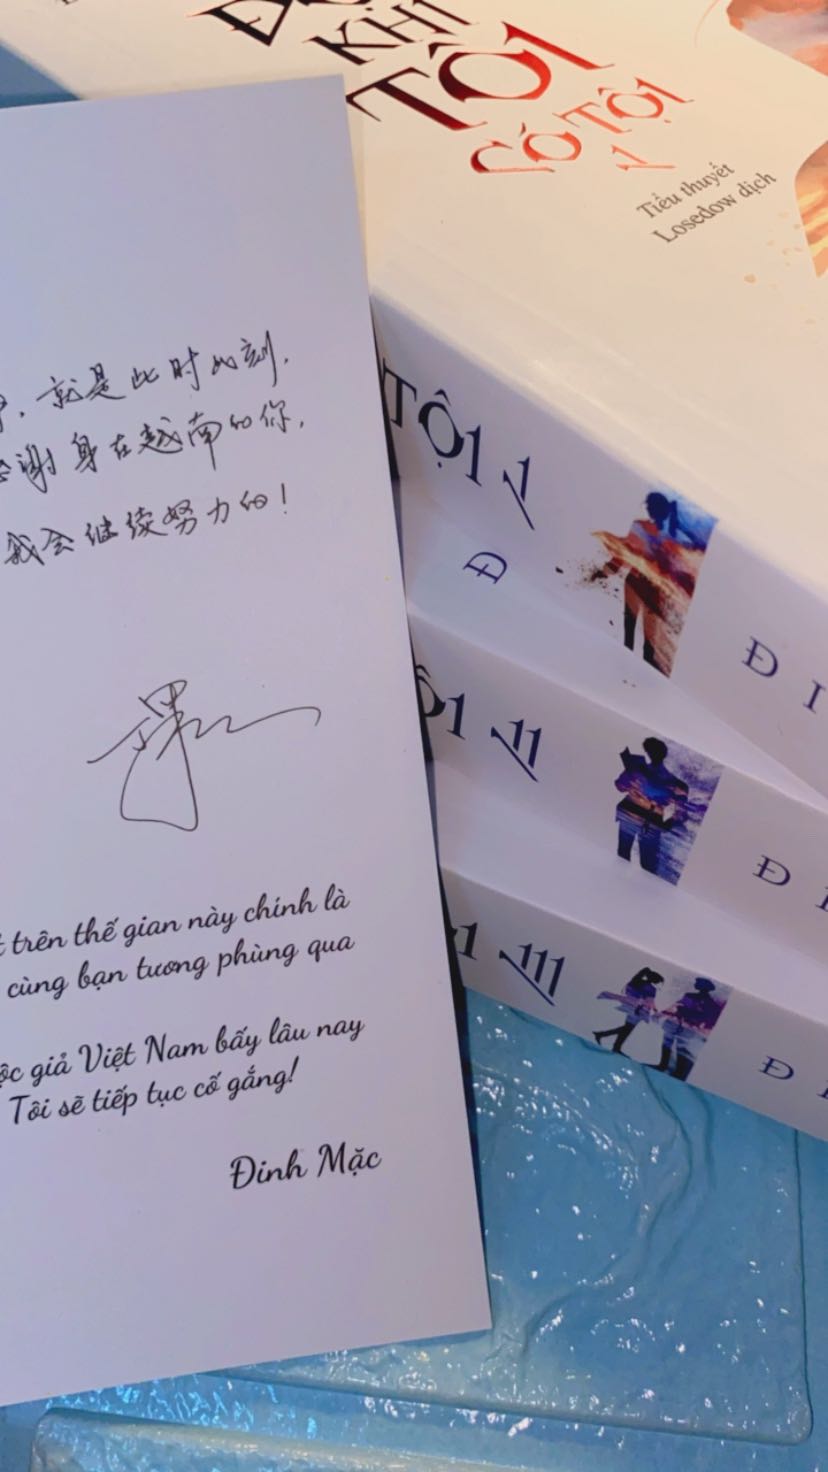 KHI
TÔI
CÓ TỘI
1
Tiểu thuyết
Losedow dịch
就是此时此刻.
谢身在越南的你,
我会继续努力的!
trên thế gian này chính là
cùng bạn tương phùng qua
giả Việt Nam bấy lâu nay
Tôi sẽ tiếp tục cố gắng!
Đinh Mặc
TỘI I
Đ
Đ I
ỘI II
Đ I
I III
Đ I